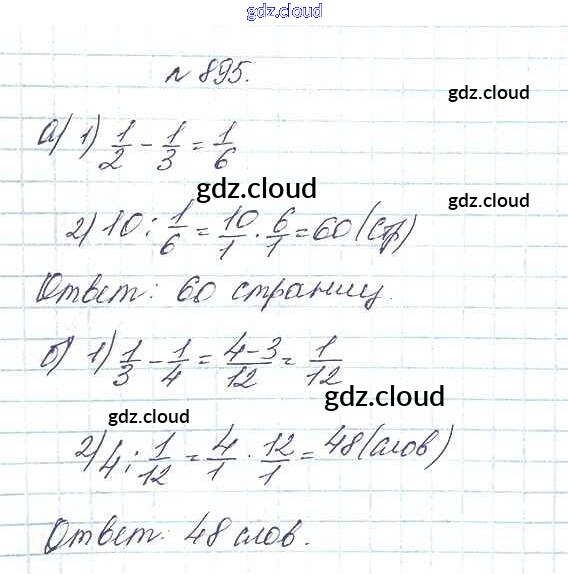 gdz.cloud
№ 895.
gdz.cloud
а) 1) 1/2 - 1/3 = 1/6
gdz.cloud
gdz.cloud
2) 10 : 1/6 = 10/1 · 6/1 = 60 (стр)
Ответ: 60 страниц.
б) 1) 1/3 - 1/4 = 4-3/12 = 1/12
gdz.cloud
gdz.cloud
2) 4 : 1/12 = 4/1 · 12/1 = 48 (слов)
Ответ: 48 слов.